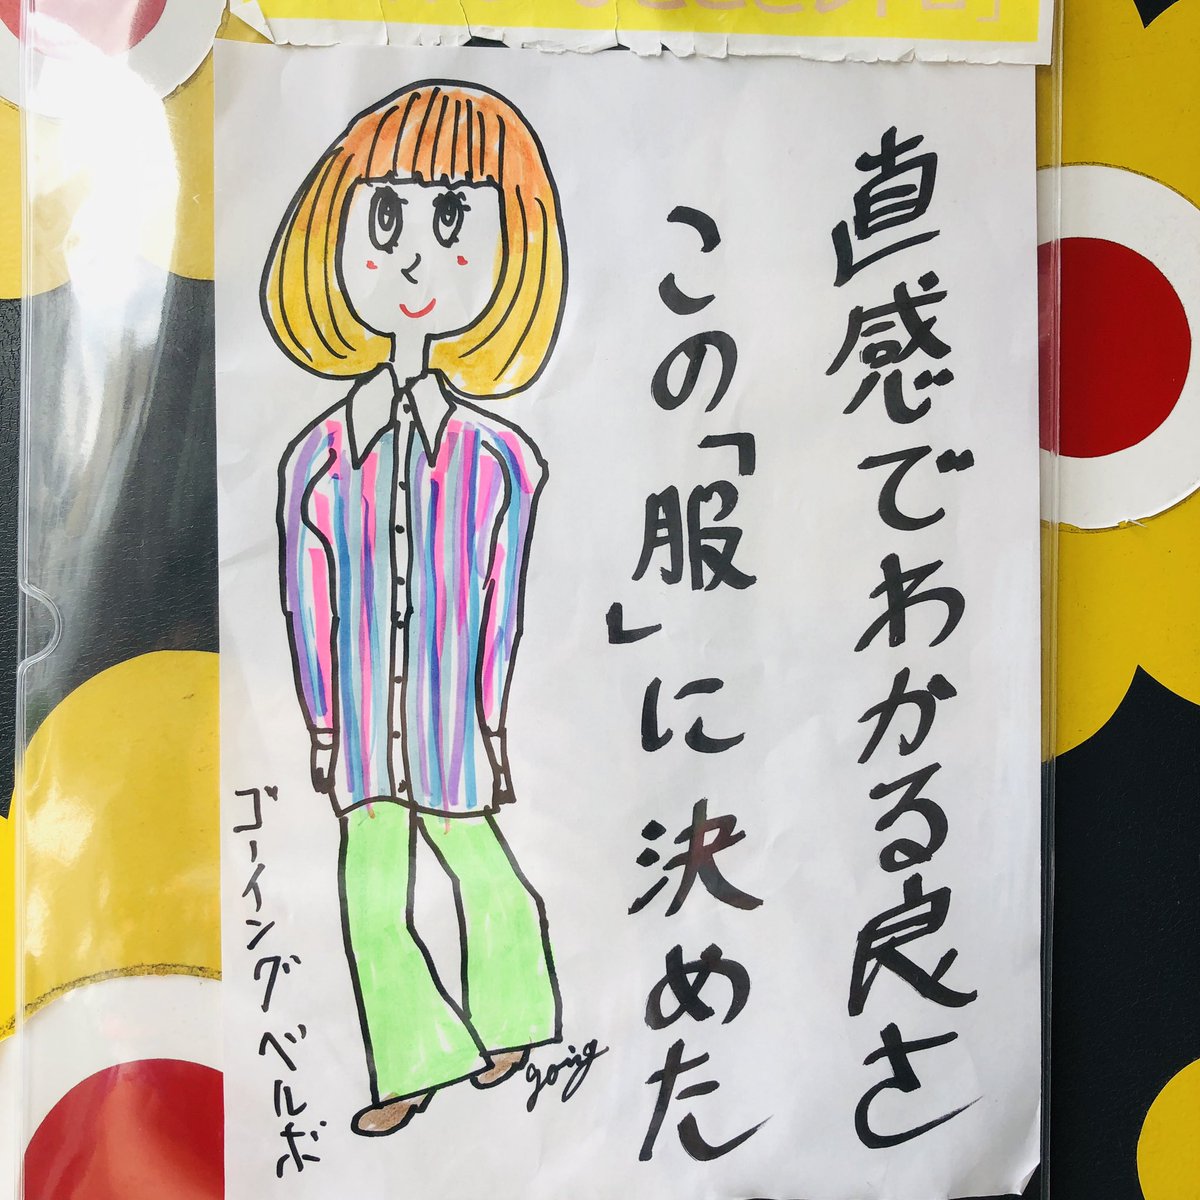 直感でわかる良さ
この「服」に決めた
ゴーイングベルボ
going